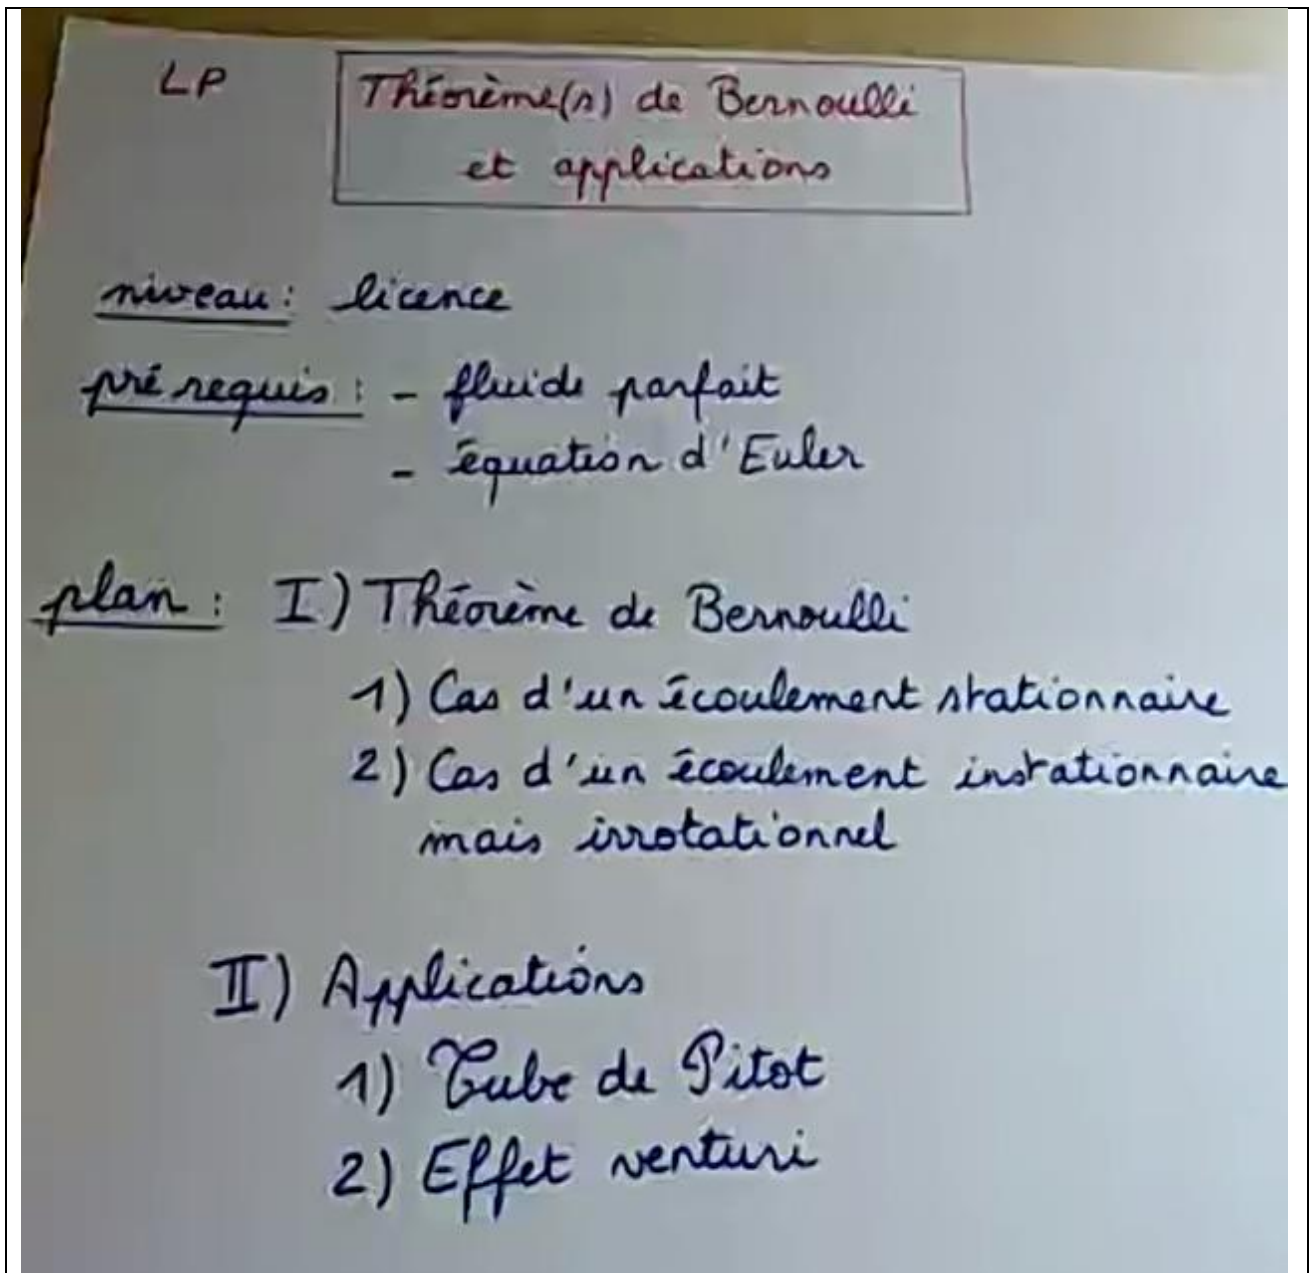 LP
Théorème(s) de Bernoulli
et applications
niveau : licence
pré requis : - fluide parfait
- équation d'Euler
plan : I) Théorème de Bernoulli
1) Cas d'un écoulement stationnaire
2) Cas d'un écoulement instationnaire
mais irrotationnel
II) Applications
1) Tube de Pitot
2) Effet venturi